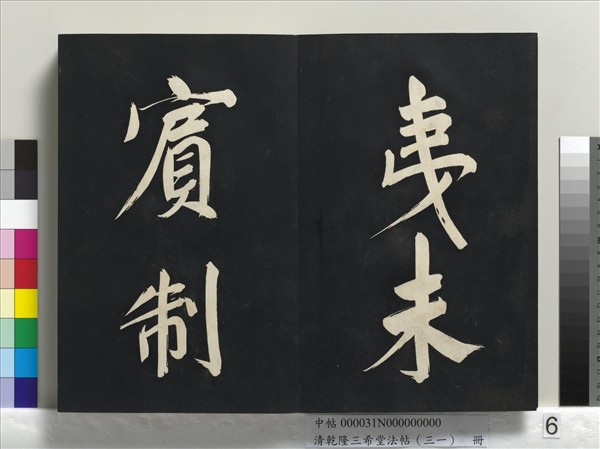 夷未
賓制
中帖 000031N000000000
清乾隆三希堂法帖（三一） 冊
6